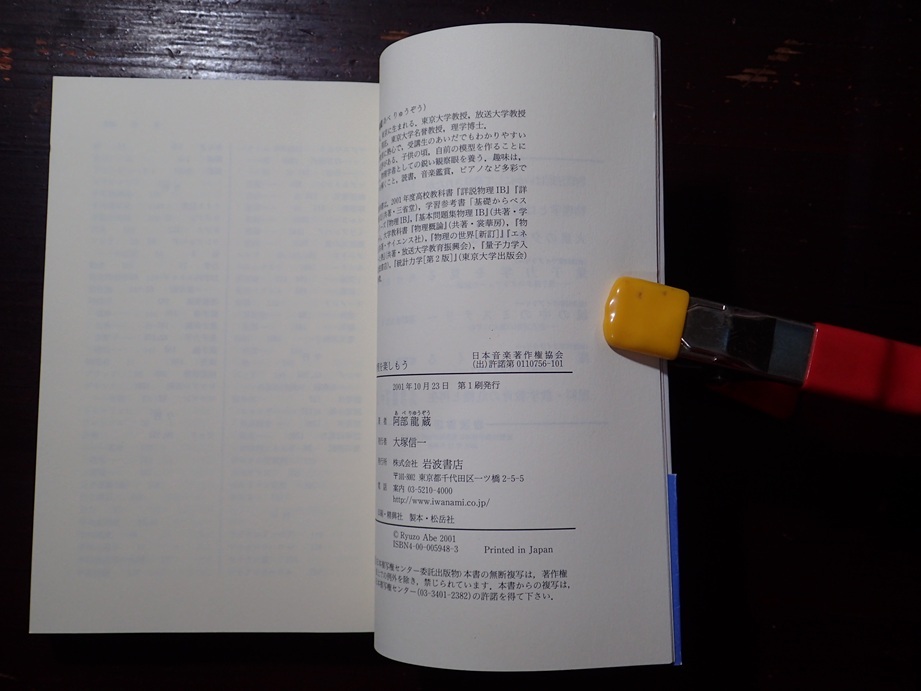 べりゅうぞう)
に生まれる．東京大学教授，放送大学教授
東京大学名誉教授，理学博士．
熱心で，受講生のあいだでもわかりやすい
がある．子供の頃，自前の模型を作ることに
学者としての鋭い観察眼を養う．趣味は，
こと，読書，音楽鑑賞，ピアノなど多彩で
は，2001年度高校教科書『詳説物理IB』『詳
著・三省堂)，学習参考書『基礎からベス
物理IB』，『基本問題集物理IB』(共著・学
大学教科書『物理概論』(共著・裳華房)，『物
・サイエンス社)，『物理の世界[新訂]』『エネ
(共著・放送大学教育振興会)，『量子力学入
『統計力学[第2版]』(東京大学出版会)
を楽しもう
日本音楽著作権協会
(出)許諾第0110756-101
2001年10月23日 第1刷発行
あべりゅうぞう
著者 阿部龍蔵
大塚信一
株式会社 岩波書店
〒101-8002 東京都千代田区一ツ橋2-5-5
案内 03-5210-4000
http://www.iwanami.co.jp/
製本・松岳社
© Ryuzo Abe 2001
ISBN4-00-005948-3 Printed in Japan
複写権センター委託出版物〉本書の無断複写は，著作権
の例外を除き，禁じられています．本書からの複写は，
複写権センター(03-3401-2382)の許諾を得て下さい．